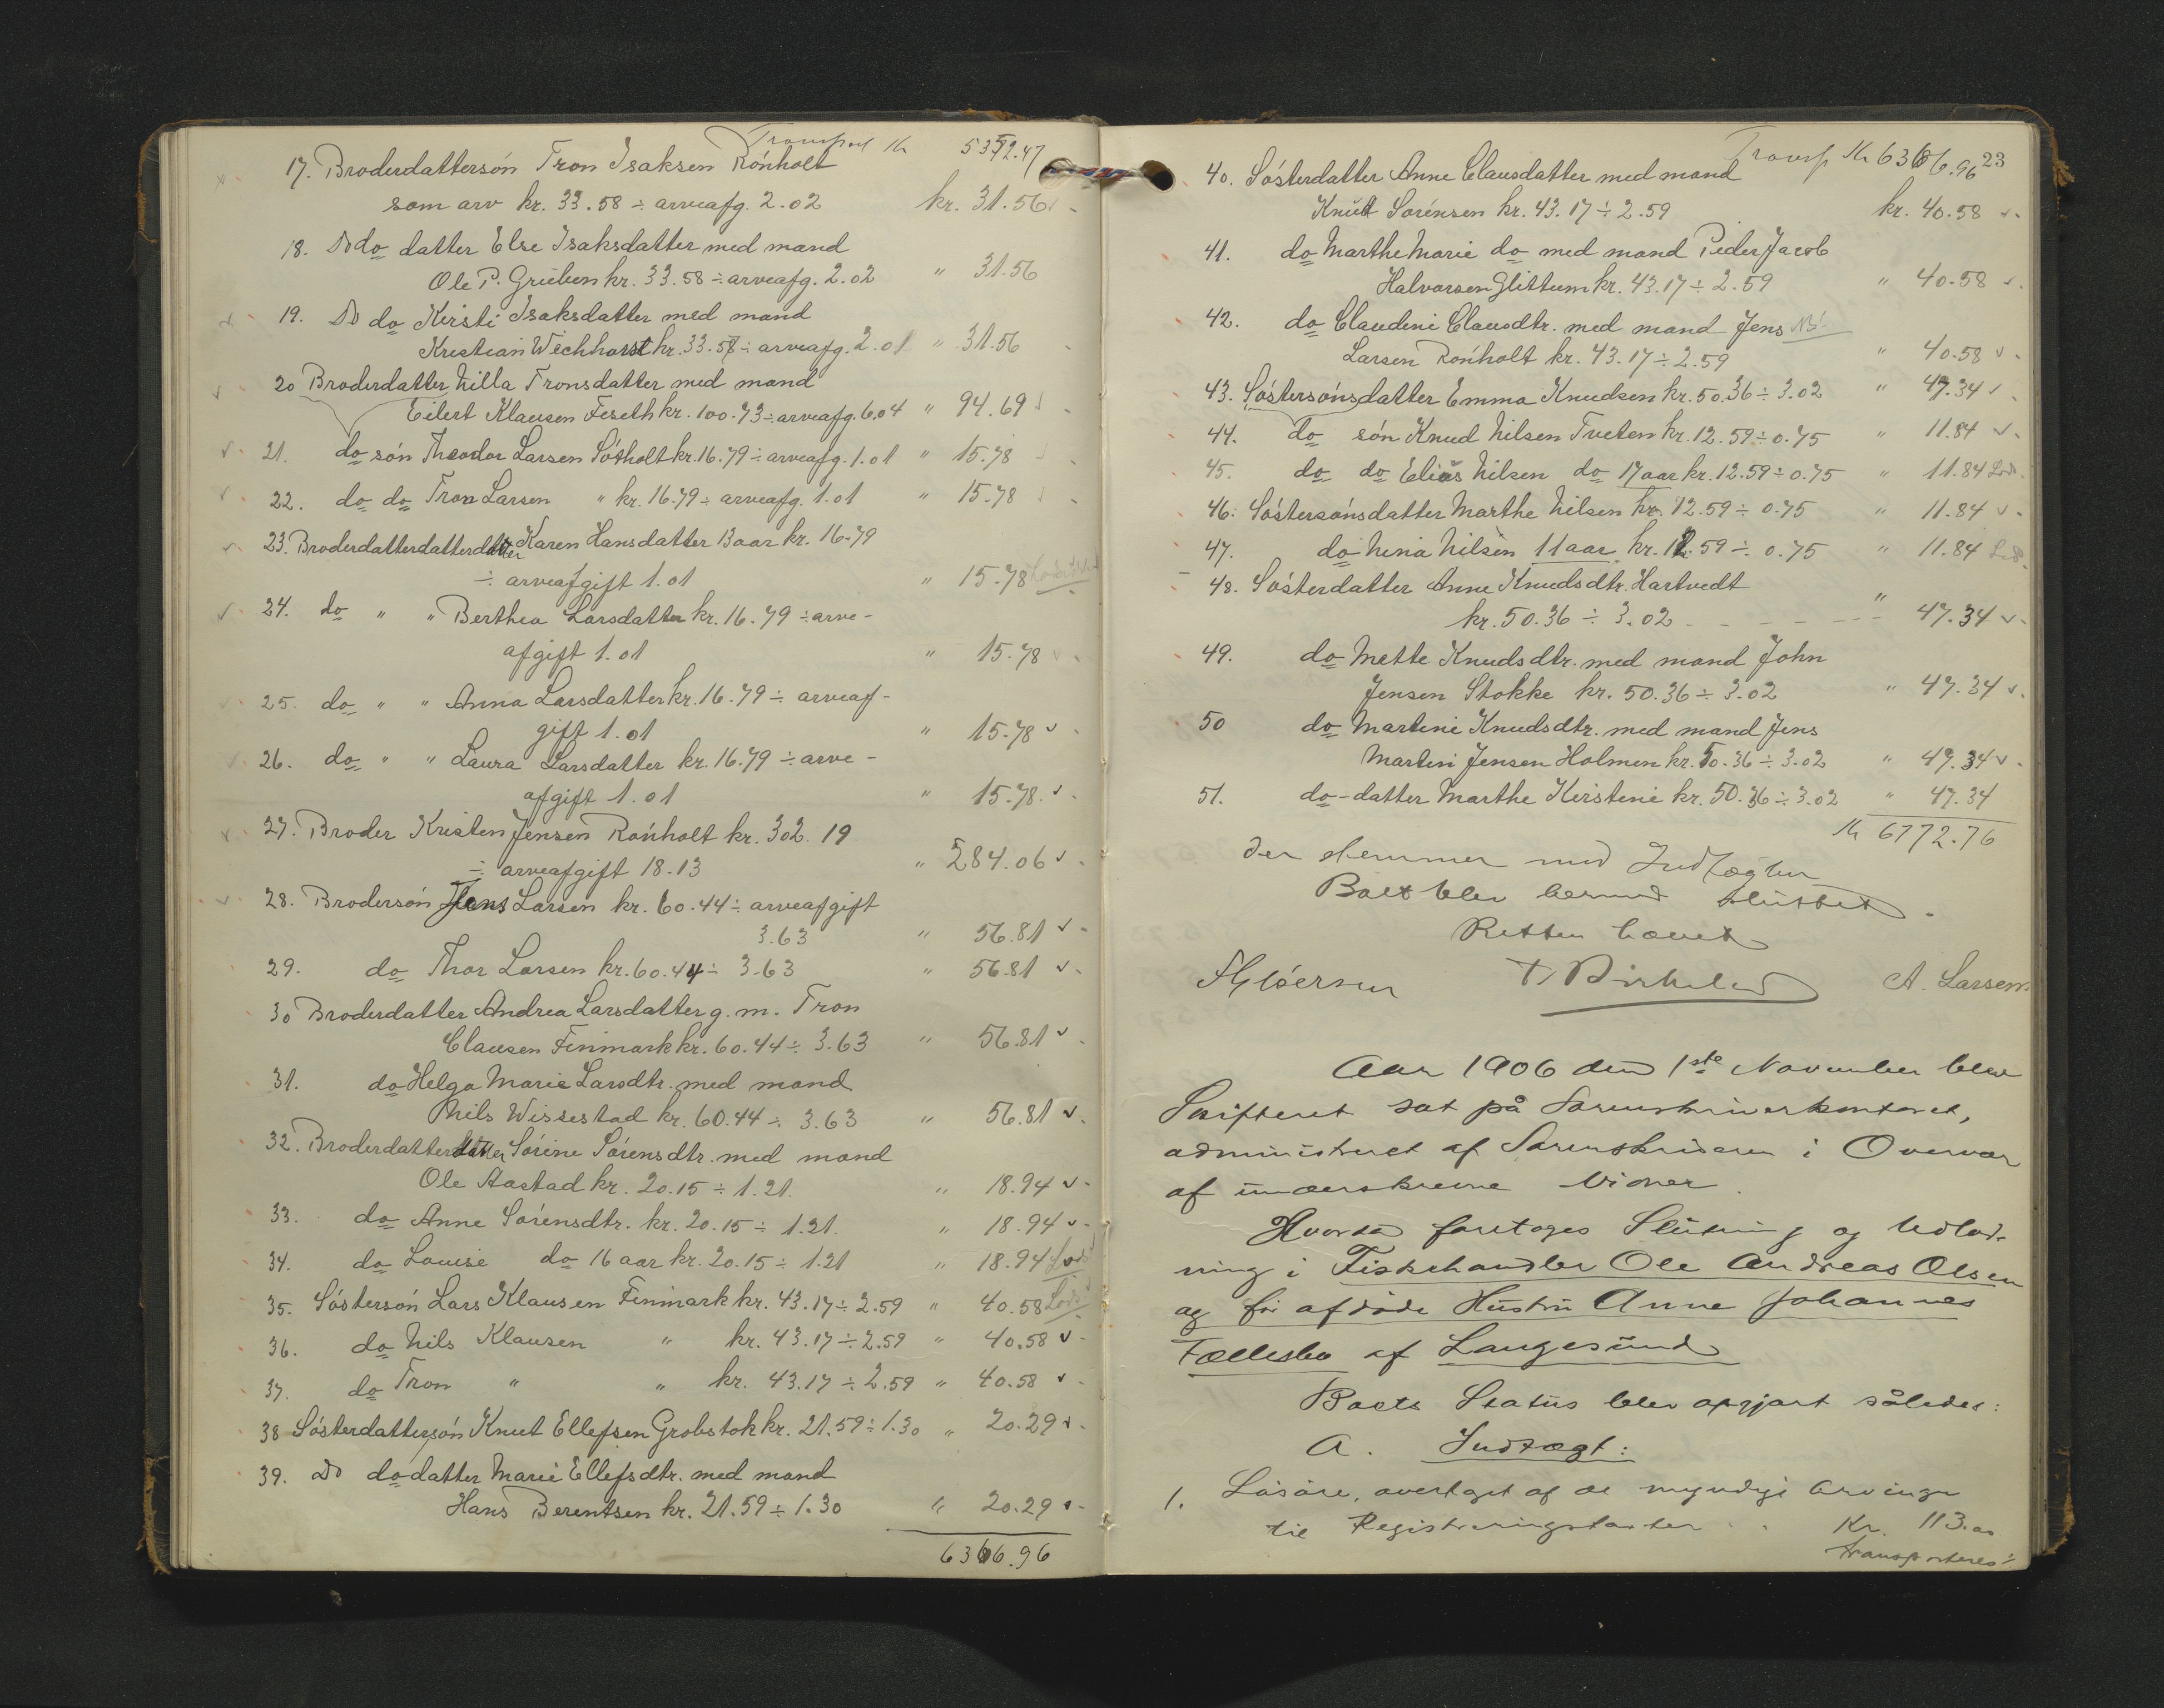 Transport Kr 5372.47
17. Broderdattersön Tron Isaksen Rönholt
som arv kr. 33.58 ÷ arveafg. 2.02 kr. 31.56
18. Do do datter Else Isaksdatter med mand
Ole P. Gruben kr. 33.58 ÷ arveafg. 2.02 " 31.56
19. Do do Kirsti Isaksdatter med mand
Kristian Wechhorst kr. 33.57 ÷ arveafg. 2.01 " 31.56
20 Broderdatter Nilla Tronsdatter med mand
Eilert Klausen Feseth kr. 100.73 ÷ arveafg. 6.04 " 94.69
21. do sön Theodor Larsen Götholt kr. 16.79 ÷ arveafg. 1.01 " 15.78
22. do do Tron Larsen " kr. 16.79 ÷ arveafg. 1.01 " 15.78
23. Broderdatterdatterdatter Karen Hansdatter Baar kr. 16.79
÷ arveafgift 1.01 " 15.78
24. do " " Berthea Larsdatter kr. 16.79 ÷ arve-
afgift 1.01 " 15.78
25. do " " Anna Larsdatter kr. 16.79 ÷ arveaf-
gift 1.01 " 15.78
26. do " " Laura Larsdatter kr. 16.79 ÷ arve-
afgift 1.01 " 15.78
27. Broder Kristen Jensen Rönholt kr. 302.19
÷ arveafgift 18.13 " 284.06
28. Brodersön Jens Larsen kr. 60.44 ÷ arveafgift
3.63 " 56.81
29. do Thor Larsen kr. 60.44 ÷ 3.63 " 56.81
30 Broderdatter Andrea Larsdatter g. m. Tron
Clausen Finmark kr. 60.44 ÷ 3.63 " 56.81
31. do Helga Marie Larsdtr. med mand
Nils Wissestad kr. 60.44 ÷ 3.63 " 56.81
32. Broderdatterdatter Sörine Sörensdtr. med mand
Ole Aastad kr. 20.15 ÷ 1.21. " 18.94
33. do Anne Sörensdtr. kr. 20.15 ÷ 1.21. " 18.94
34. do Louise do 16 aar kr. 20.15 ÷ 1.21 " 18.94
35. Söstersön Lars Klausen Finmark kr. 43.17 ÷ 2.59 " 40.58
36. do Nils Klausen " kr. 43.17 ÷ 2.59 " 40.58
37. do Tron " " kr. 43.17 ÷ 2.59 " 40.58
38 Sösterdattersön Knut Ellefsen Grobstok kr. 21.59 ÷ 1.30 " 20.29
39. Do do datter Marie Ellefsdtr. med mand
Hans Berentsen kr. 21.59 ÷ 1.30 " 20.29
6366.96
Transp Kr 6366.96 23
40. Sösterdatter Anne Clausdatter med mand
Knut Sörensen kr. 43.17 ÷ 2.59 kr. 40.58
41. do Marthe Marie do med mand Peder Jacob
Halvorsen Glittum kr. 43.17 ÷ 2.59 " 40.58
42. do Claudine Clausdtr. med mand Jens
Larsen Rönholt kr. 43.17 ÷ 2.59 " 40.58
43. Söstersönsdatter Emma Knudsen kr. 50.36 ÷ 3.02 " 47.34
44. do sön Knud Nilsen Tveten kr. 12.59 ÷ 0.75 " 11.84
45. do do Elias Nilsen do 17 aar kr. 12.59 ÷ 0.75 " 11.84
46. Söstersönsdatter Marthe Nilsen kr. 12.59 ÷ 0.75 " 11.84
47. do Nina Nilsen 11 aar kr. 12.59 ÷ 0.75 " 11.84
48. Sösterdatter Anne Knudsdtr. Hartvedt
kr. 50.36 ÷ 3.02 " 47.34
49. do Mette Knudsdtr. med mand John
Jensen Stokke kr. 50.36 ÷ 3.02 " 47.34
50 do Martine Knudsdtr. med mand Jens
Martin Jensen Holmen kr. 50.36 ÷ 3.02 " 47.34
51. do-datter Marthe Kirstine kr. 50.36 ÷ 3.02 " 47.34
Kr 6772.76
der stemmer med Indtægten
Boet blev dermed sluttet.
Retten hævet
A. Larsen
Aar 1906 den 1ste November blev
Skifteret sat på Sorenskriverkontoret,
administreret af Sorenskriveren i Overvær
af underskrevne Vidner.
Hvorda foretages Slutning og Udlod-
ning i Fiskehandler Ole Andreas Olsen
og før afdöde Hustru Anne Johannes
Fællesbo af Langesund
Boets Status blev opgjort således:
A. Indtægt:
1. Lösöre, overtaget af de myndige Arvinger
til Registreringstaxten . . Kr. 113.00
transporteres